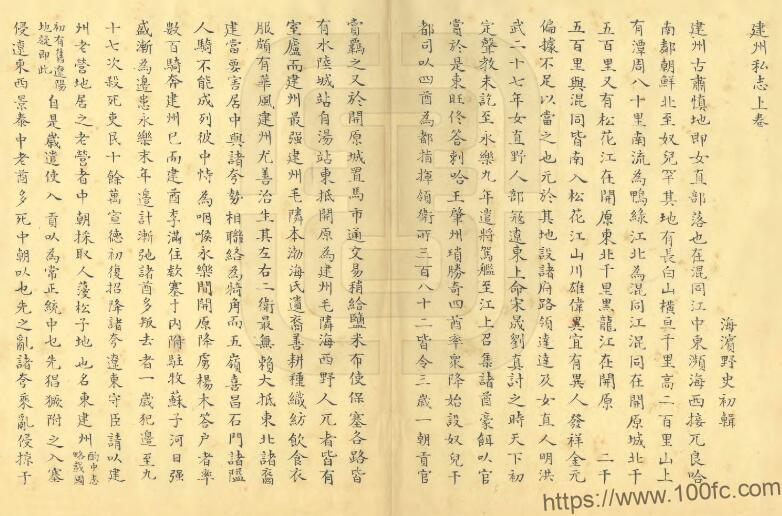 建州私志上卷
海濱野史初輯
建州古肅慎地即女直部落也在混同江中東瀕海西接兀良哈
南鄰朝鮮北至奴兒罕其地有長白山橫亘千里高二百里山上
有潭周八十里南流為鴨綠江北為混同江混同在開原城北千
五百里又有松花江在開原東北千里黑龍江在開原 二千
五百里與混同皆南入松花江山川雄偉異宜有異人發祥金元
偏據不足以當之也元於其地設諸府路領達達及女直人明洪
武二十七年女直野人部寇遼東上命宋晟劉真討之時天下初
定聲教未訖至永樂九年遣將駕艦至江上召集諸酋豪餌以官
賞於是東旺佟答剌哈王肇州瑣勝奇四酋率眾降始設奴兒干
都司以四酋為都指揮領衛所三百八十二皆令三歲一朝貢官
賞羈之又於開原城置馬市通交易稍給鹽米布使保塞各路皆
有水陸城站自湯站東抵開原為建州毛隣海西野人兀者皆有
室廬而建州最强建州毛隣本渤海氏遺裔善耕種織紡飲食衣
服頗有華風建州尤善治生其左右二衛最無賴大抵東北諸裔
建當要害居中與諸夸勢相聯絡為犄角而五嶺喜昌石門諸隘
人騎不能成列彼中恃為咽喉永樂間開原降虜楊木答户者率
數百騎奔建州巳而建酋李滿住欵塞于內附駐牧蘇子河日强
盛漸為邊患永樂末年邊計漸弛諸酋多叛去者一歲犯邊至九
十七次殺死吏民十餘萬宣德初復招降諸夸遼東守臣請以建
州老營地居之老營者中朝採取人葠松子地也名東建州 酌中志略載國
初有舊遼陽地疑即此 自是歲遣使入貢以為常正統中也先猖獗附之入塞
侵遼東西景泰中老酋多死中朝以也先之亂諸夸乘亂侵掠于
https://www.100fc.com